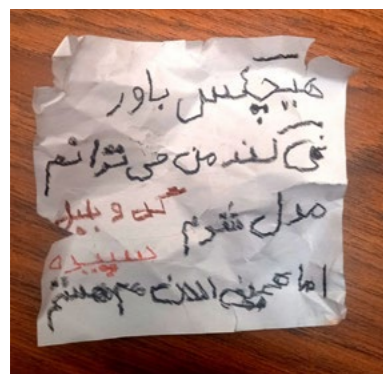 هیچکس باور
نمی کند من می توانم
مدل شوم
گل و بلبل
سپیده
اما همین الان هم هستم